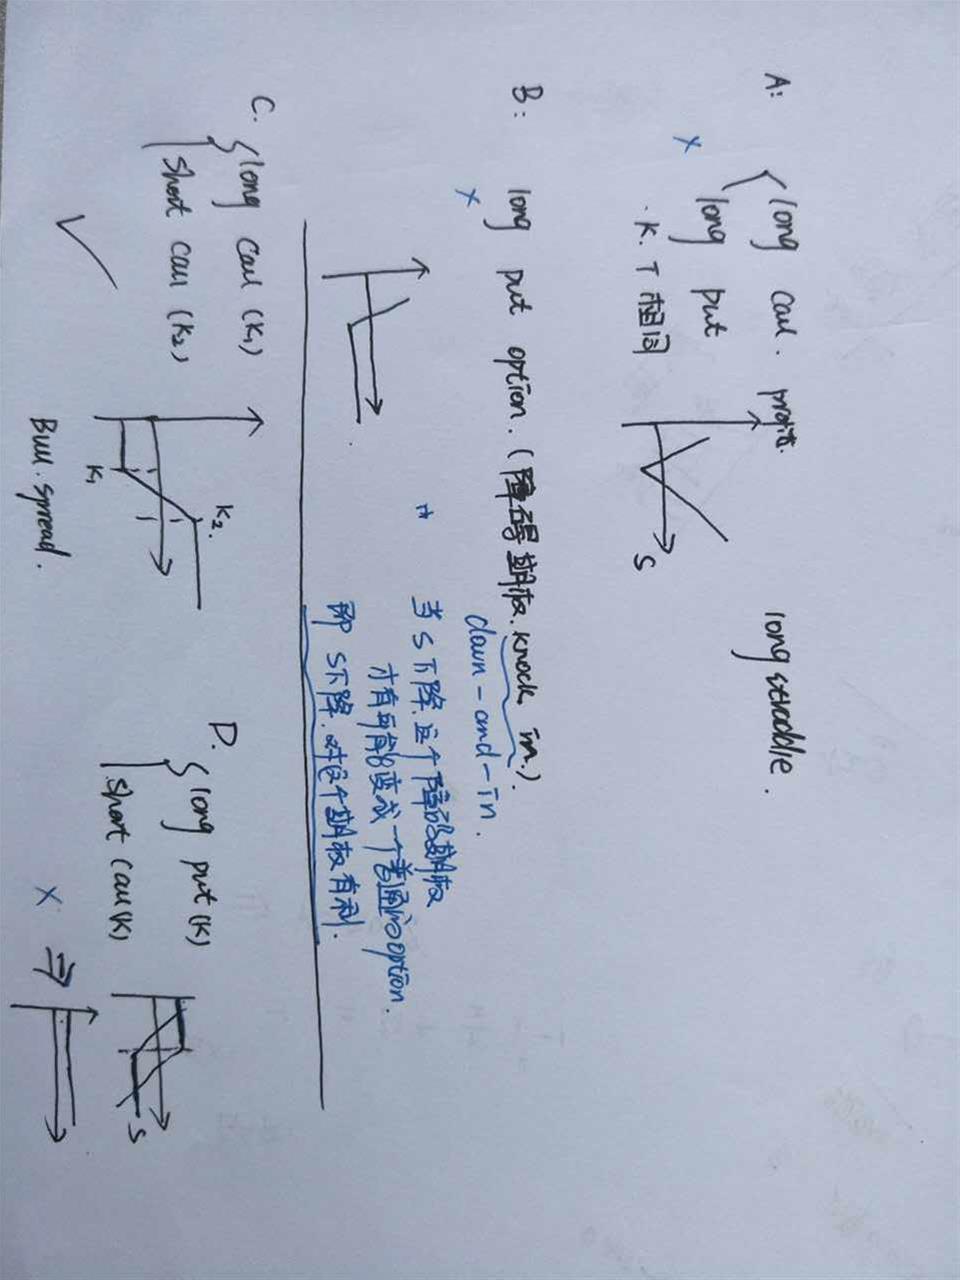 A: { long call. profit. long straddle.
long put
· K. T 相同
S
B: long put option. (障碍期权. knock in.)
down-and-in.
当S下降.这个障碍期权
才有可能变成一个普通的option.
即 S下降.对这个期权有利.
C. { long call (K1)
short call (K2)
K2.
K1
Bull. spread.
D. { long put (K)
short call (K)
S